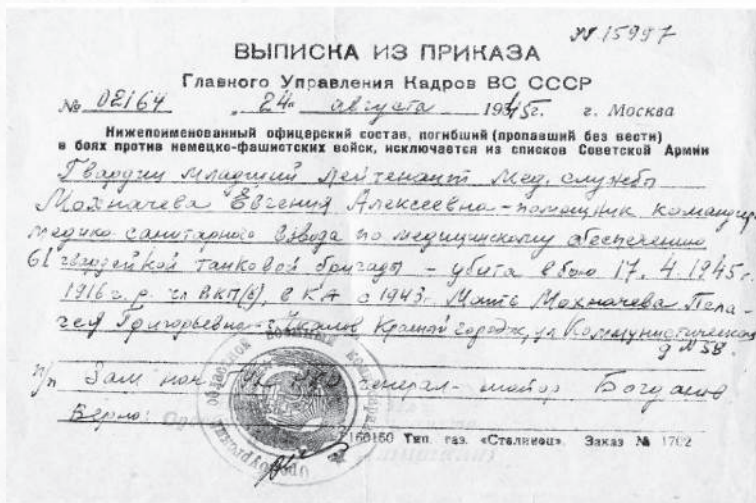 15997
ВЫПИСКА ИЗ ПРИКАЗА
Главного Управления Кадров ВС СССР
№ 02164 „24" августа 1945г. г. Москва
Нижепоименованный офицерский состав, погибший (пропавший без вести)
в боях против немецко-фашистских войск, исключается из списков Советской Армии
Гвардии младший лейтенант мед. службы
Мохначева Евгения Алексеевна - помощник командира
медико-санитарного взвода по медицинскому обеспечению
61 гвардейской танковой бригады - убита в бою 17.4.1945г.
1916 г. р. чл ВКП(б), в КА с 1943г. Мать Мохначева Пела-
гея Григорьевна - г. Чкалов Красный городок, ул Коммунистическая
д № 58.
п/п Зам нач генерал-майор Богданов
Верно:
160150 Тип. газ. «Сталинец». Заказ № 1702